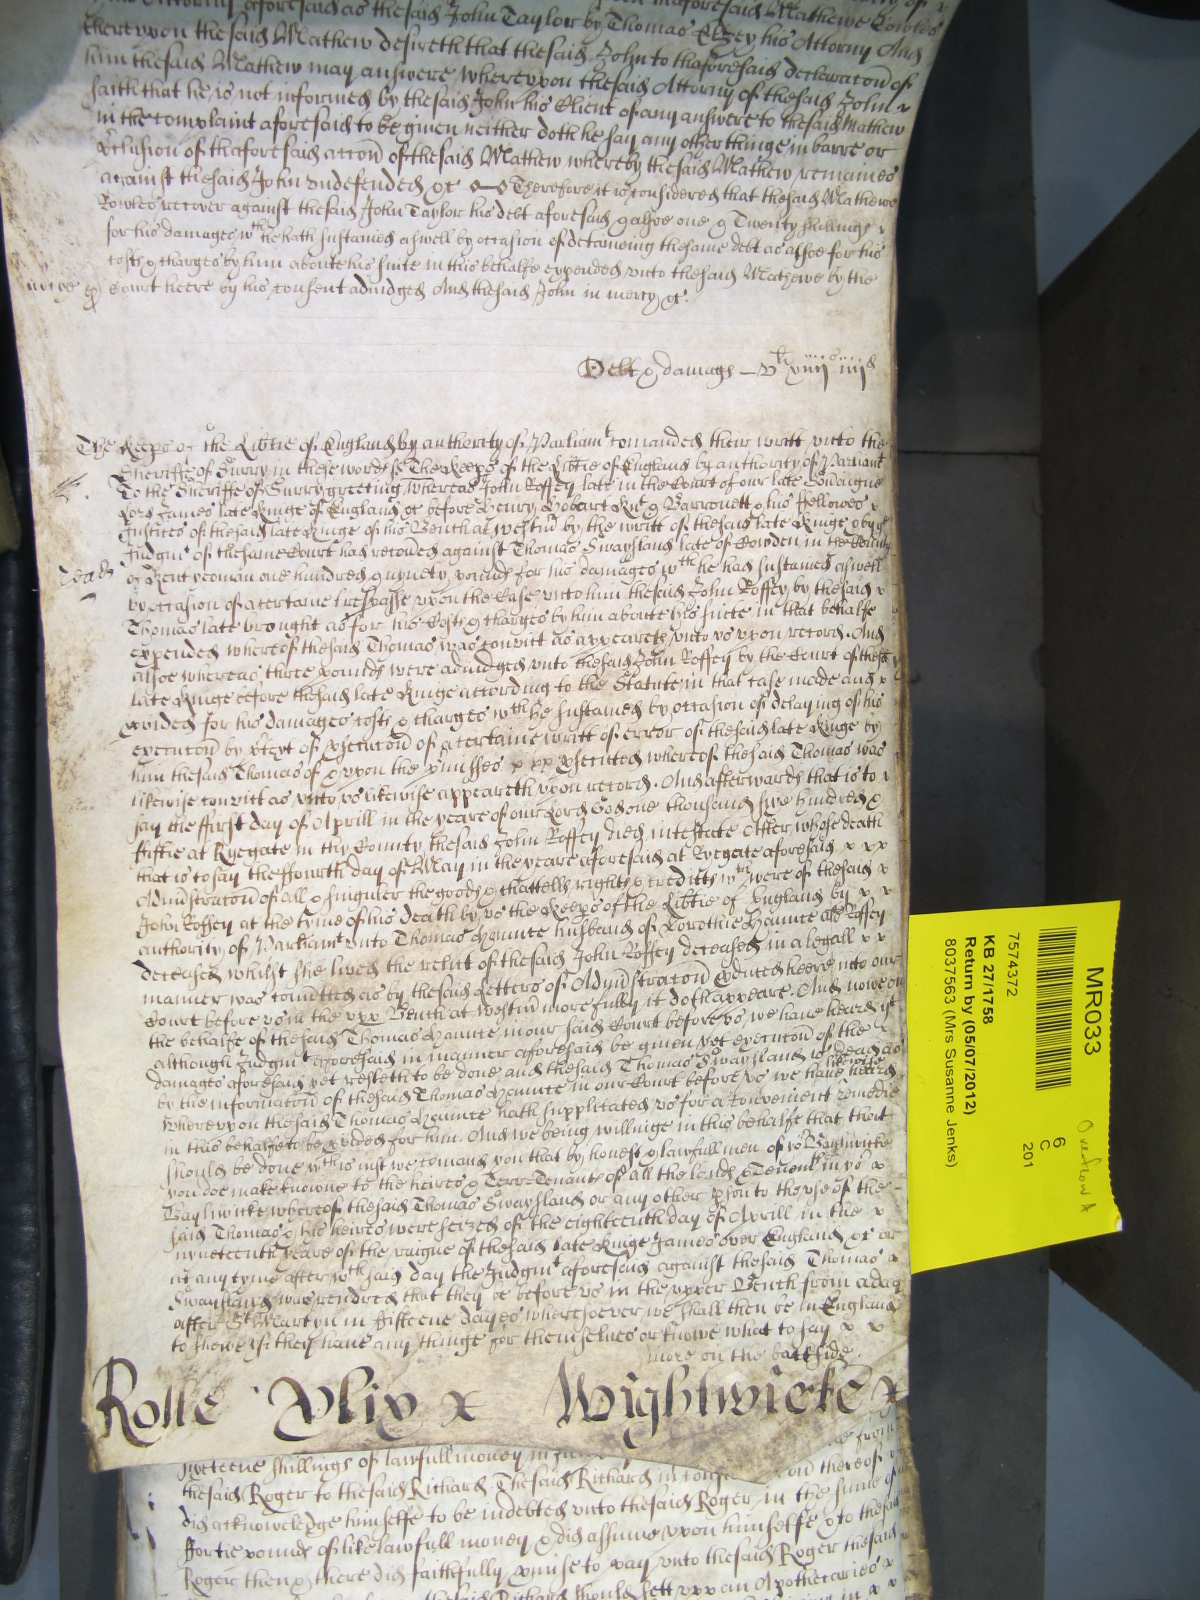 Attorny aforesaid as the said John Taylor by Thomas Elzey his Attorny And
thereupon the said Mathew desireth that the said John to thaforesaid declaracon of
him the said Mathew may answere whereupon the said Attorny of the said John
saith that he is not informed by the said John his Client of any answere to the said Mathew
in the complaint aforesaid to be given neither doth he say any other thinge in barre or
of thaforesaid accon of the said Mathew whereby the said Mathew remaines
against the said John undefended &c Therefore it is considered that the said Mathewe
Cowles recover against the said John Taylor his debt aforesaid & alsoe one & Twenty shillings
for his damages wch he hath susteined aswell by occasion of detaineing the same debt as alsoe for his
costs & charges by him about his suite in this behalfe expended unto the said Mathewe by the
Court heere by his consent adiudged And the said John in mercy &c.
Debt & damags – vli xiiijs iiijd
The Keeps of the Libtie of England by authority of Parliamt comanded their writt unto the
Sheriffe of Surry in these words ss The Keeps of the Libtie of England by authority of Parliamt
To the Sheriffe of Surry greeting whereas John Roffey late in the Court of our late Soveaigne
Lord James late Kinge of England &c before Henry Hobart Knt & Barronett & his ffellowes
Justices of the said late Kinge of his Bench at Westm by the writt of the said late Kinge & by
Judgmt of the same Court had recoved against Thomas Swaysland late of Cowden in the County
of Kent yeoman one hundred & nynety pounds for his damages wch he had susteined aswell
by occasion of a certaine trespasse upon the Case unto him the said John Roffey by the said
Thomas late brought as for his Costs & charges by him about his suite in that behalfe
expended whereof the said Thomas was convict as appeareth unto us upon record. And
alsoe whereas three pounds were adiudged unto the said John Roffey by the Court of the said
late Kinge before the said late Kinge according to the Statute in that case made and
pvided for his damages costs & charges wch he susteined by occasion of delaying of his
execucon by ptext of psecucon of a certaine writt of error of the said late Kinge by
him the said Thomas of & upon the pmisses psecuted whereof the said Thomas was
likewise convict as unto us likewise appeareth upon record. And afterwards that is to
say the ffirst day of Aprill in the yeare of our Lord God one thousand sixe hundred &
fiftie at Ryegate in thy County the said John Roffey died intestate After whose death
that is to say the ffourth day of May in the yeare aforesaid at Ryegate aforesaid
Administracon of all & singuler the goods & chattells rights & creditts wch were of the said
John Roffey at the tyme of his death by us the Keeps of the Libtie of England by
authority of Parliamt unto Thomas Haunce husband of Dorothie Haunce als Roffey
deceased whilst she lived the relict of the said John Roffey deceased in a legall
manner was comitted as by the said Letters of Administracon pduced heere into our
Court before us in the upp Bench at Westm more fully it doth appeare. And nowe on
the behalfe of the said Thomas Haunce in our said Court before us, we have heard yt
although Judgmt aforesaid in manner aforesaid be given yet execucon of the
damages aforesaid yet resteth to be done and the said Thomas Swaysland is dead as
by the informacon of the said Thomas Haunce in our Court before us we have likewise heard
Whereupon the said Thomas Haunce hath supplicated us for a convenient remedie
in this behalfe to be pvided for him. And we being willinge in this behalfe that that
should be done wch is iust we comand you that by honest & lawfull men of yor Bayliwicke
you doe make knowne to the heires & Terr-Tenants of all the lands & Tenemts in yor
Bayliwicke whereof the said Thomas Swaysland or any other pson to the use of the
said Thomas & his heires were seized of the eighteenth day of Aprill in the
nyneteenth yeare of the raigne of the said late Kinge James over England &c or
at any tyme after wch said day the Judgmt aforesaid against the said Thomas
Swaysland was rendred that they be before us in the upper Bench from a day
after St Martyn in fifteene dayes wheresoever we shall then be in England
to shewe if they have any thinge for themselves or knowe what to say
more on the backside.
Rolle xliv Wightwicke
shillings of lawfull money in
the said Roger to the said Richard The said Richard in thereof
did acknowledge himselfe to be indebted unto the said Roger in the sume of
ffortie pounds of like lawfull money & did assume upon himselfe & to the said
Roger then & there did faithfully pmise to pay unto the said Roger the said
MR033
7574372
KB 27/1758
Return by (05/07/2012)
8037563 (Mrs Susanne Jenks)
6
C
201
Overflow A